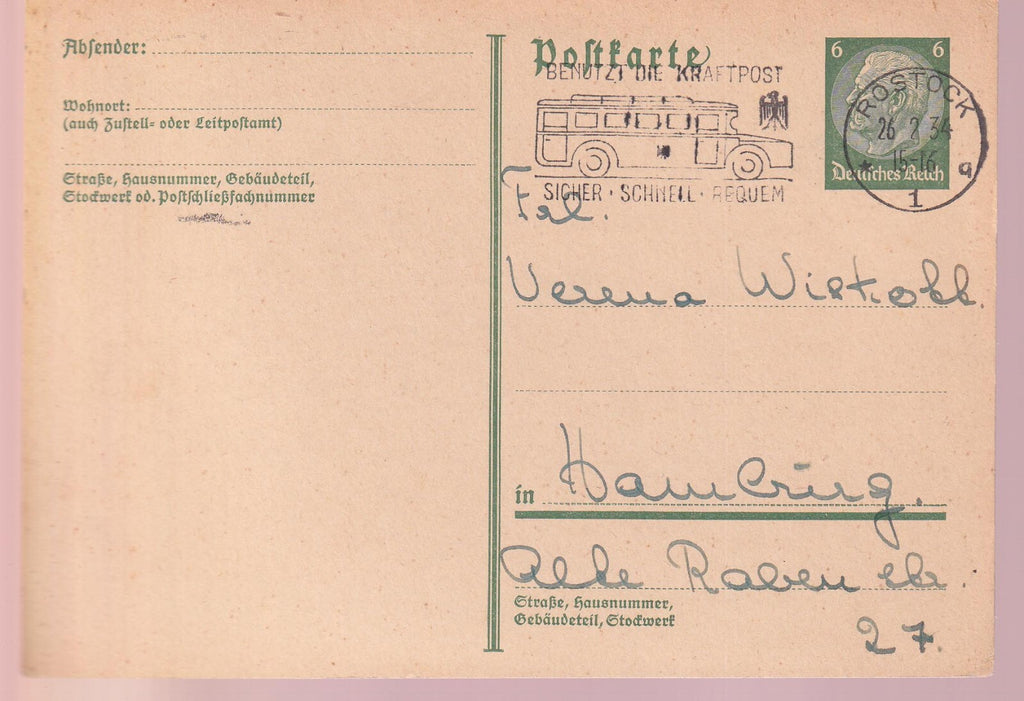 Absender:
Wohnort:
(auch Zustell- oder Leitpostamt)
Straße, Hausnummer, Gebäudeteil,
Stockwerk od. Postschließfachnummer
Postkarte
BENUTZT DIE KRAFTPOST
SICHER · SCHNELL · BEQUEM
6 6
Deutsches Reich
ROSTOCK
26 2 34
15-16
* 1 a
Frl.
Verena
in Hamburg.
Alte Rabenstr.
Straße, Hausnummer,
Gebäudeteil, Stockwerk
27.